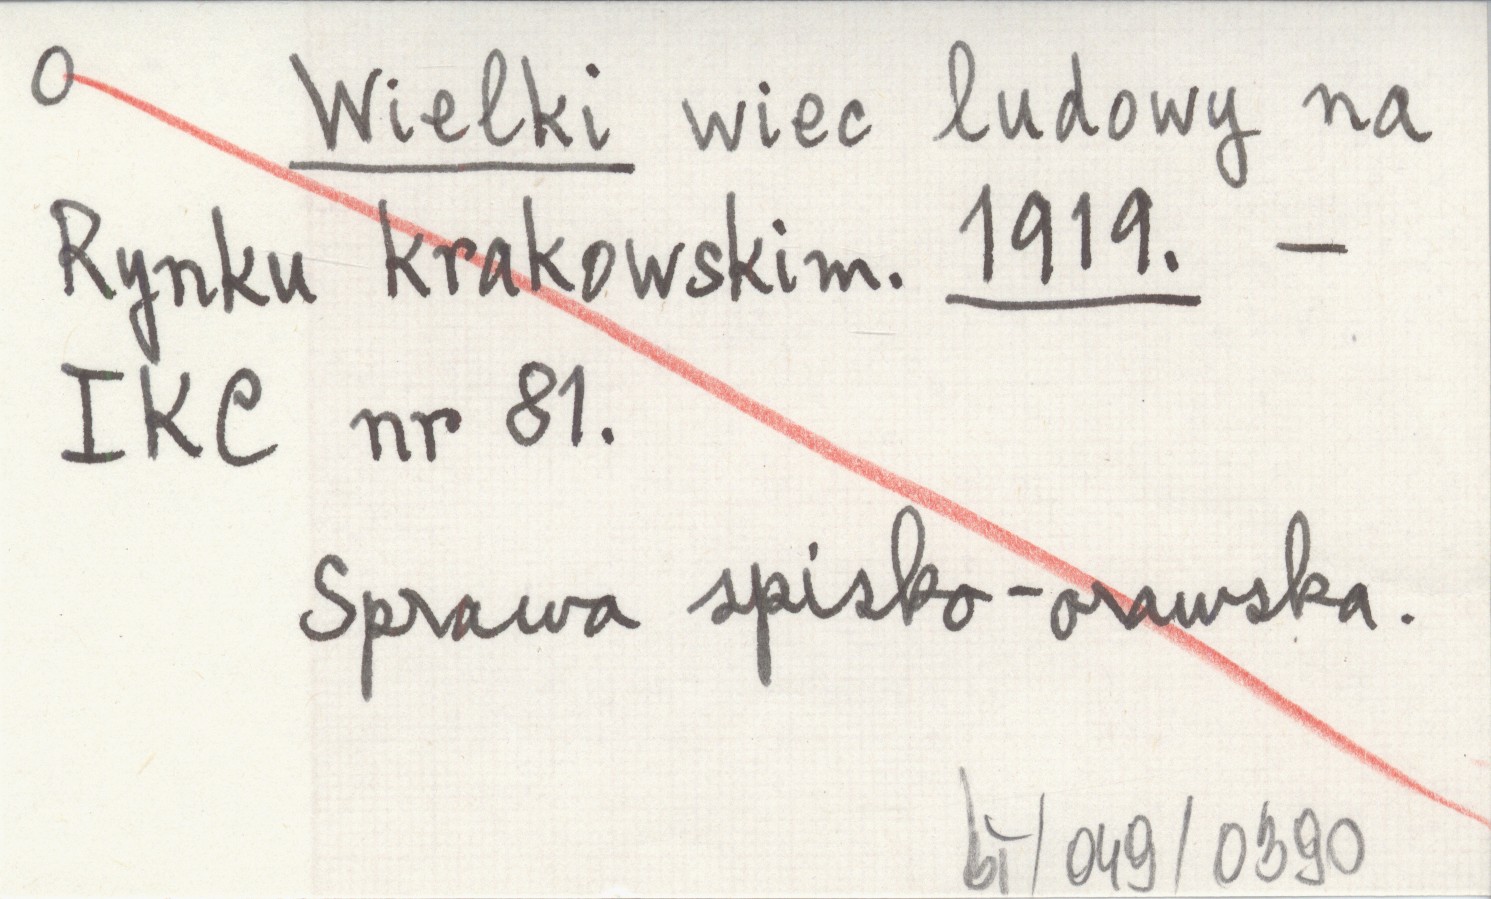 O Wielki wiec ludowy na
Rynku krakowskim. 1919. —
IKC nr 81.
Sprawa spisko-orawska.
bi/049/0390